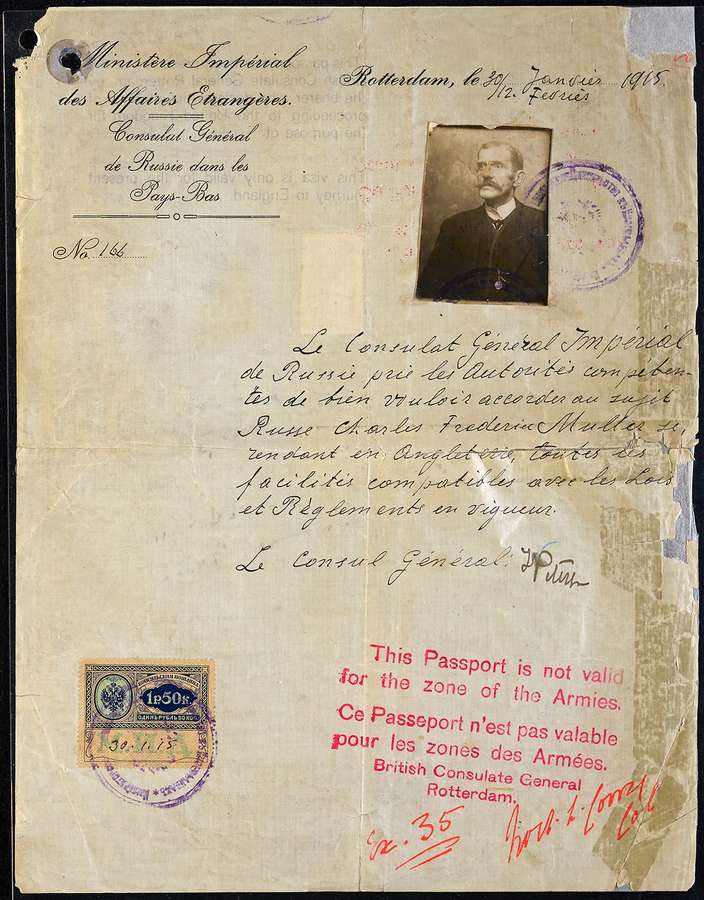 Ministère Impérial
des Affaires Etrangères.
Consulat Général
de Russie dans les
Pays-Bas
No. 166
Rotterdam, le 30/12. Janvier/Fevrier 1915.
Le Consulat Général Impérial
de Russie prie les Autorités compéten-
tes de bien vouloir accorder au sujet
Russe Charles Frederic Muller se
rendant en Angleterie, toutes les
facilités compatibles avec les Lois
et Règlements en vigueur.
Le Consul Général:
1р50к.
ОДИНЪ РУБЛЬ 50 КОП.
30.1.15
This Passport is not valid
for the zone of the Armies.
Ce Passeport n'est pas valable
pour les zones des Armées.
British Consulate General
Rotterdam.
Ex. 35